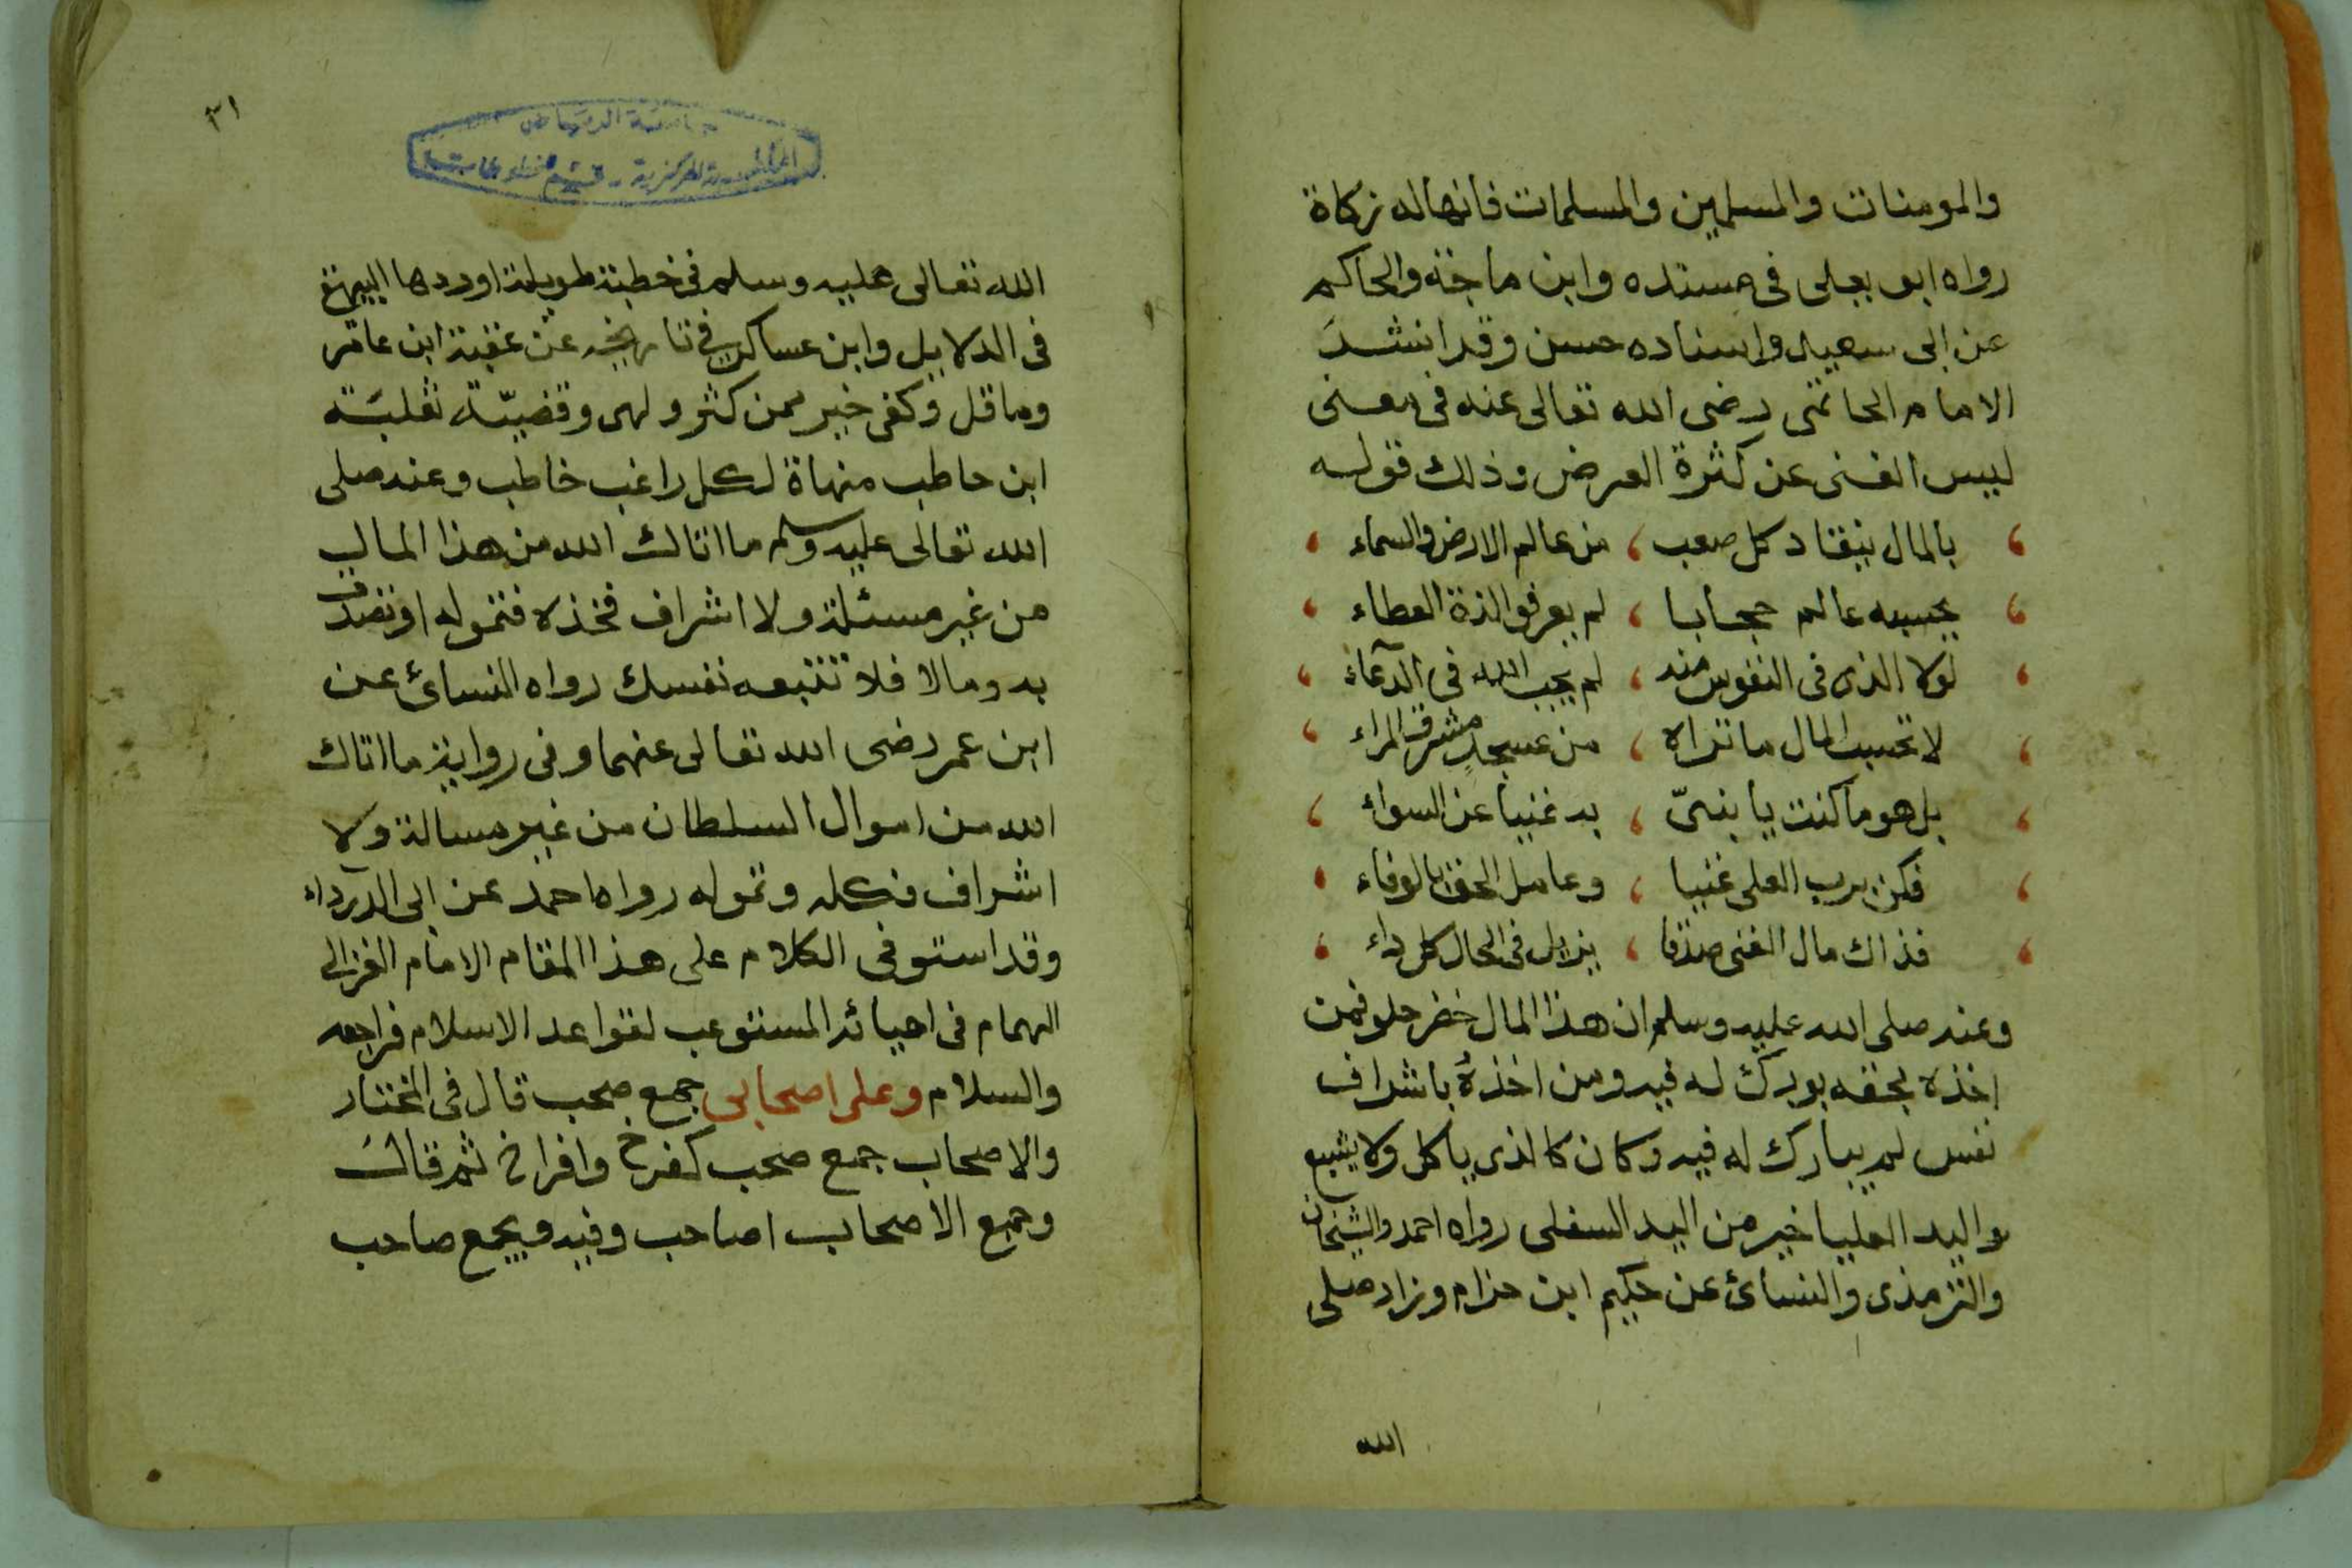 والمومنات والمسلمين والمسلمات فانها له زكاة
رواه ابو يعلى فى مسنده وابن ماجة والحاكم
عن ابى سعيد واسناده حسن وقد انشد
الامام الحاتمى رضى الله تعالى عنه فى معنى
ليس الغنى عن كثرة العرض وذلك قوله
بالمال ينقاد كل صعب ، من عالم الارض والسماء
يحسبه عالم حجابا ، لم يعرفوا لذة العطاء
لولا الذى فى النفوس منه ، لم يجب الله فى الدعاء
لا تحسب المال ما تراه ، من عسجد مشرق المراء
بل هو ما كنت يا بنىّ ، به غنيا عن السواء
فكن برب العلى غنيا ، وعامل الحق بالوفاء
فذاك مال الغنى صدقا ، يزيل فى الحال كل داء
وعنه صلى الله عليه وسلم ان هذا المال خضر حلو فمن
اخذه بحقه بورك له فيه ومن اخذه باشراف
نفس لم يبارك له فيه وكان كالذى ياكل ولا يشبع
واليد العليا خير من اليد السفلى رواه احمد والشيخان
والترمذى والنسائ عن حكيم ابن حزام وزاد صلى
الله
٣١
جامعة الرياض
المكتبة المركزية - قسم المخطوطات
الله تعالى عليه وسلم فى خطبة طويلة اوردها البيهقى
فى الدلايل وابن عساكر فى تاريخه عن عقبة ابن عامر
وما قل وكفى خير ممن كثر ولهى وقضيّة ثعلبة
ابن حاطب منهاة لكل راغب خاطب وعنه صلى
الله تعالى عليه وسلم ما اتاك الله من هذا المال
من غير مسئلة ولا اشراف فخذه فتموله او تصدق
به ومالا فلا تتبعه نفسك رواه النسائ عن
ابن عمر رضى الله تعالى عنهما وفى رواية ما اتاك
الله من اموال السلطان من غير مسالة ولا
اشراف فكله وتموله رواه احمد عن ابى الدرداء
وقد استوفى الكلام على هذا المقام الامام الغزالى
الهمام فى احيائه المستوعب لقواعد الاسلام فراجعه
والسلام وعلى اصحابى جمع صحب قال فى المختار
والاصحاب جمع صحب كفرخ وافراخ ثم قال
وجمع الاصحاب اصاحب وفيه ويجمع صاحب